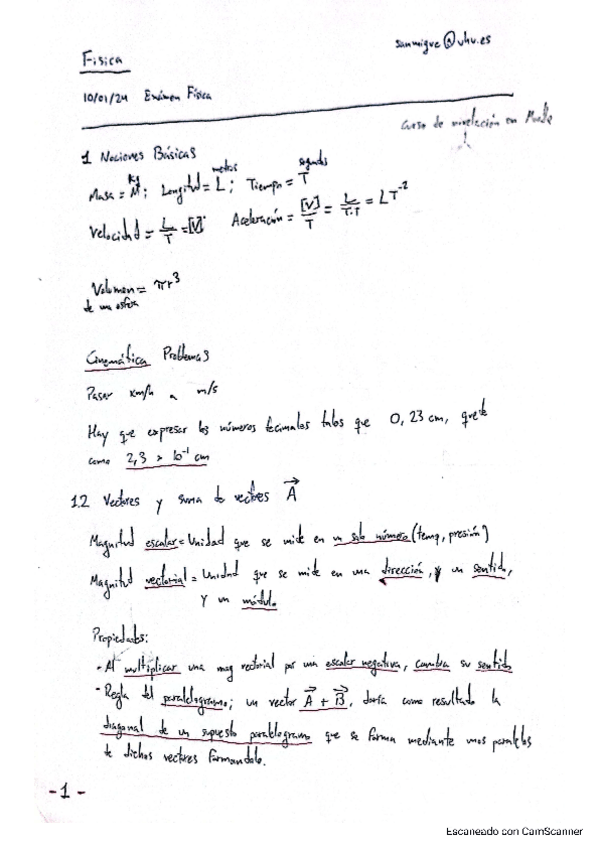 sanmigue@uhu.es
Física
10/01/24 Exámen Física
Curso de nivelación en Moodle
1 Nociones Básicas
kg metros segundos
Masa = M; Longitud = L; Tiempo = T
Velocidad = L/T = [V] Aceleración = [V]/T = L/T·T = LT⁻²
Volumen = πr³
de una esfera
Cinemática Problemas
Pasar km/h a m/s
Hay que expresar los números decimales tales que 0,23 cm, quede
como 2,3 × 10⁻¹ cm
1.2 Vectores y suma de vectores A⃗
Magnitud escalar = Unidad que se mide en un solo número (temp, presión)
Magnitud vectorial = Unidad que se mide en una dirección, y un sentido,
y un módulo
Propiedades:
- Al multiplicar una mag vectorial por una escalar negativa, cambia su sentido
- Regla del paralelogramo; un vector A⃗ + B⃗, daría como resultado la
diagonal de un supuesto paralelogramo que se forma mediante unos paralelos
de dichos vectores formandolo.
-1-
Escaneado con CamScanner